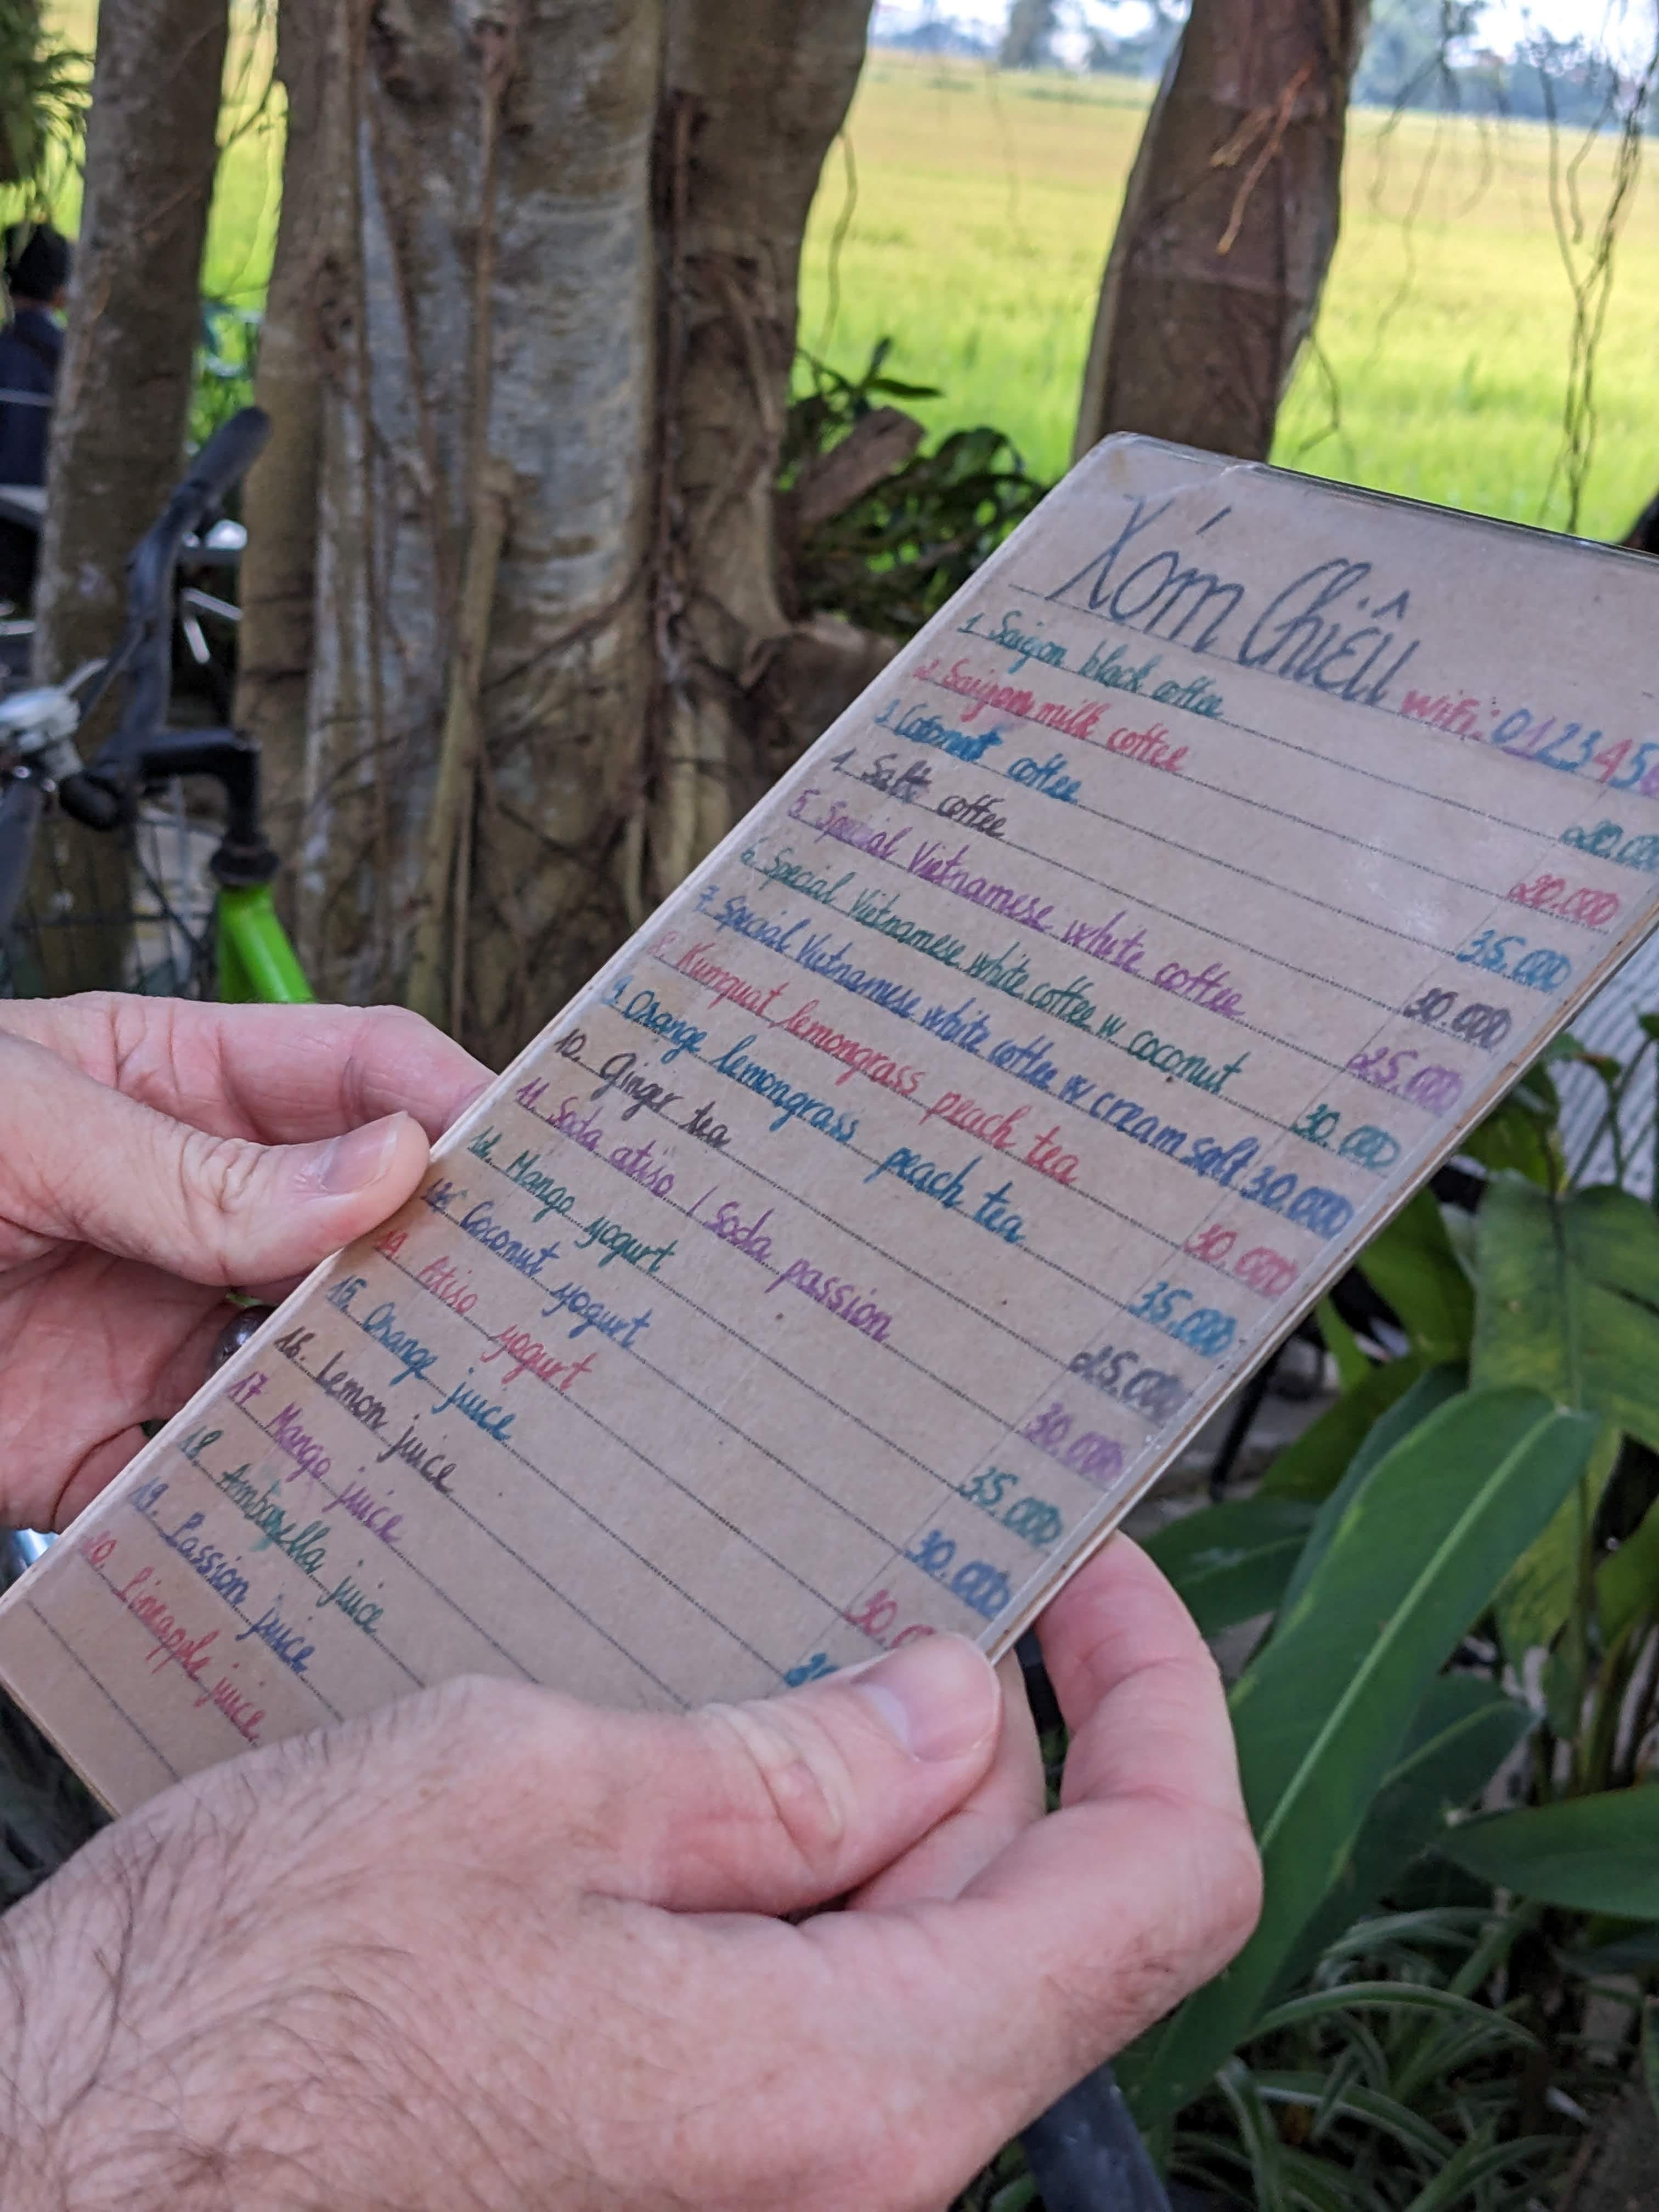 Xóm Chiêu
wifi: 012345
1 Saigon black coffee 20.00
2. Saigon milk coffee 20.000
3 Coconut coffee 35.000
4. Salt coffee 30.000
5 Special Vietnamese white coffee 25.000
6. Special Vietnamese white coffee w coconut 30.000
7. Special Vietnamese white coffee w cream salt 30.000
8. Kumquat lemongrass peach tea 30.000
9. Orange lemongrass peach tea 35.000
10. Ginger tea 25.000
11. Soda atiso / Soda passion 30.000
12. Mango yogurt 35.000
13. Coconut yogurt 30.000
14. Atiso yogurt 30.0
15. Orange juice
16. Lemon juice
17 Mango juice
18. Ambarella juice
19. Passion juice
20. Pineapple juice